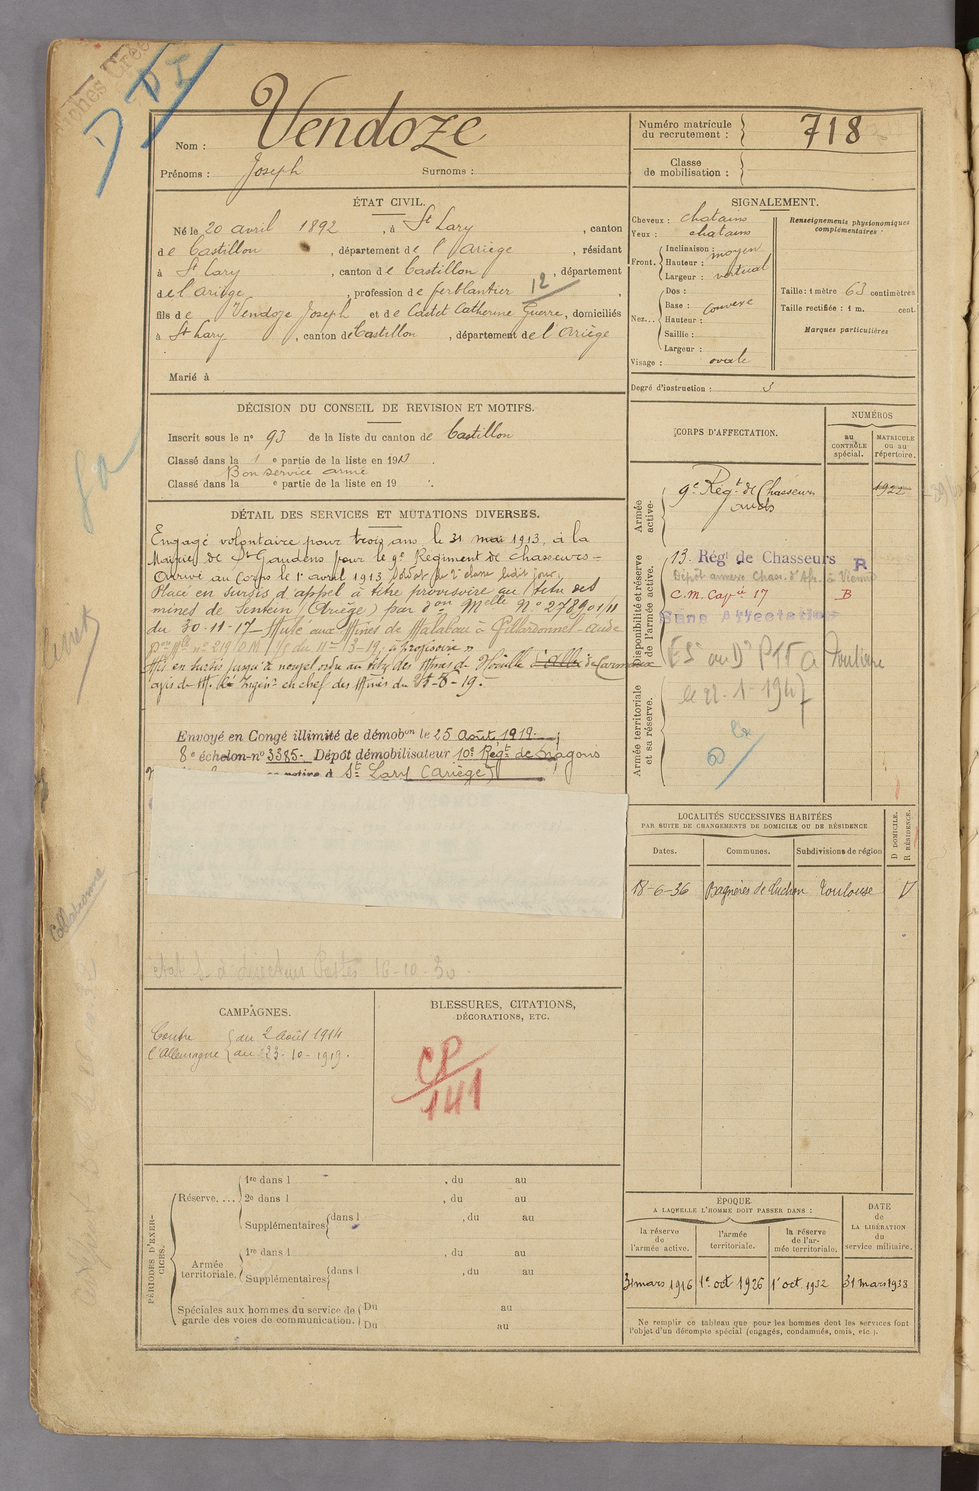 D D I
Nom : Vendoze
Prénoms : Joseph Surnoms :
Numéro matricule du recrutement : 718
Classe de mobilisation :
ÉTAT CIVIL.
Né le 20 avril 1892, à St Lary, canton
de Castillon, département de l'Ariège, résidant
à St Lary, canton de Castillon, département
de l'Ariège, profession de ferblantier 12
fils de Vendoze Joseph et de Castet Catherine Guerre, domiciliés
à St Lary, canton de Castillon, département de l'Ariège
Marié à
SIGNALEMENT.
Cheveux : chatains
Yeux : chatains
Front. Inclinaison : moyen
Hauteur :
Largeur : vertical
Nez... Dos :
Base : convexe
Hauteur :
Saillie :
Largeur :
Visage : ovale
Renseignements physionomiques complémentaires :
Taille : 1 mètre 63 centimètres
Taille rectifiée : 1 m. cent.
Marques particulières
Degré d'instruction : 3
DÉCISION DU CONSEIL DE REVISION ET MOTIFS.
Inscrit sous le n° 93 de la liste du canton de Castillon
Classé dans la 1e partie de la liste en 1913.
Bon service armé
Classé dans la e partie de la liste en 19
DÉTAIL DES SERVICES ET MUTATIONS DIVERSES.
Engagé volontaire pour trois ans le 31 mai 1913, à la
Mairie de St Gaudens pour le 9e Régiment de Chasseurs -
Arrivé au Corps le 1er avril 1913 Soldat de 2e classe ledit jour.
Placé en sursis d'appel à titre provisoire au titre des
mines de Sentein (Ariège) par d°n Melle N° 278901/11
du 30-11-17 - Muté aux Mines de Malabau à Villardonnel - Aude
Mis en sursis jusqu'à nouvel ordre au titre des Mines de Houille de Carmaux
avis de M. en chef des Mines du 25-6-19.
Envoyé en Congé illimité de démobon le 25 Août 1919
8e échelon - n° 3385. Dépôt démobilisateur 10e Régt de Dragons
St Lary (Ariège)
Directeur Postes 16-10-30
CORPS D'AFFECTATION.
NUMÉROS
au CONTRÔLE spécial.
MATRICULE ou au répertoire.
Armée active.
9e Régt de Chasseurs
1922
Disponibilité et réserve de l'armée active.
13. Régt de Chasseurs R
Dépôt annexe Chass. d'Af. à Vienne
C.M. Capié 17 B
Sans Affectation
Toulouse
le 22-1-1947
Armée territoriale et sa réserve.
LOCALITÉS SUCCESSIVES HABITÉES
PAR SUITE DE CHANGEMENTS DE DOMICILE OU DE RÉSIDENCE
Dates. Communes. Subdivisions de région
D DOMICILE. R RÉSIDENCE.
18-6-36 Bagnères de Luchon Toulouse D
CAMPAGNES.
Contre l'Allemagne
du 2 Août 1914
au 23-10-1919.
BLESSURES, CITATIONS,
DÉCORATIONS, ETC.
CP
141
PÉRIODES D'EXERCICES.
Réserve.... 1re dans l , du au
2e dans l , du au
Supplémentaires dans l , du au
Armée territoriale. 1re dans l , du au
Supplémentaires dans l , du au
Spéciales aux hommes du service de garde des voies de communication. Du au
Du au
ÉPOQUE
A LAQUELLE L'HOMME DOIT PASSER DANS :
la réserve de l'armée active.
l'armée territoriale.
la réserve de l'armée territoriale.
DATE de LA LIBÉRATION du service militaire.
31 mars 1916 1er oct 1926 1er oct 1932 31 mars 1938
Ne remplir ce tableau que pour les hommes dont les services font
l'objet d'un décompte spécial (engagés, condamnés, omis, etc.).